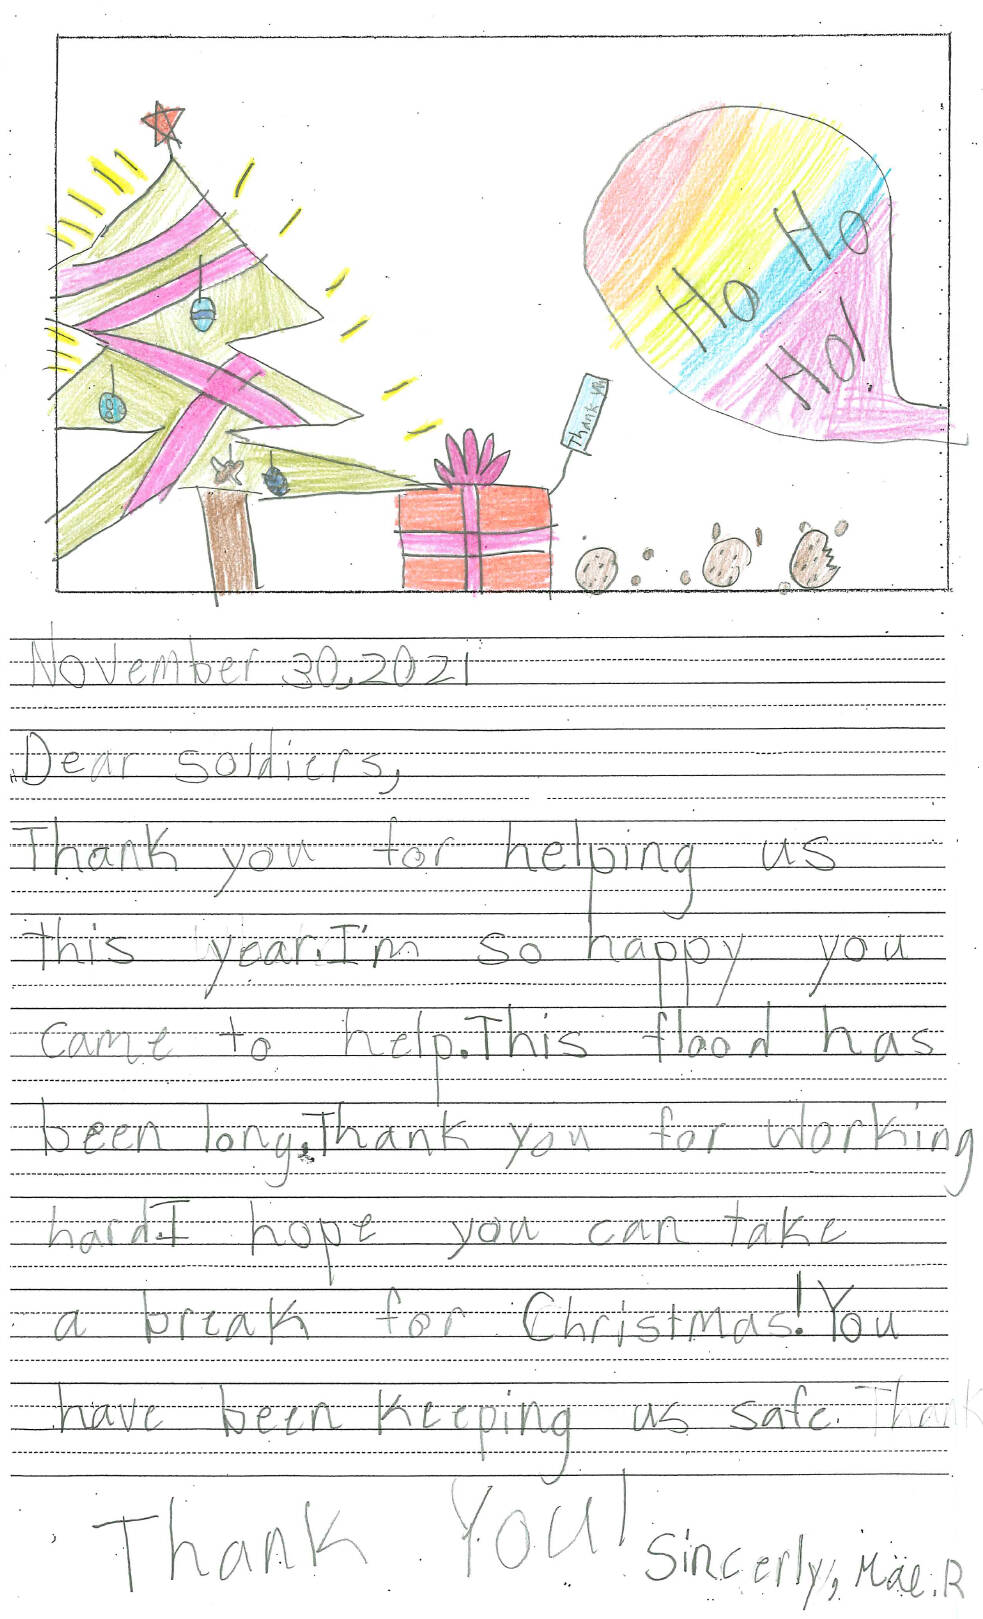 Ho Ho
Ho!
Thank you
November 30, 2021
Dear soldiers,
Thank you for helping us
this year. I'm so happy you
came to help. This flood has
been long. Thank you for working
hard. I hope you can take
a break for Christmas! You
have been keeping us safe. Thank
Thank You!
Sincerly, Mae.R